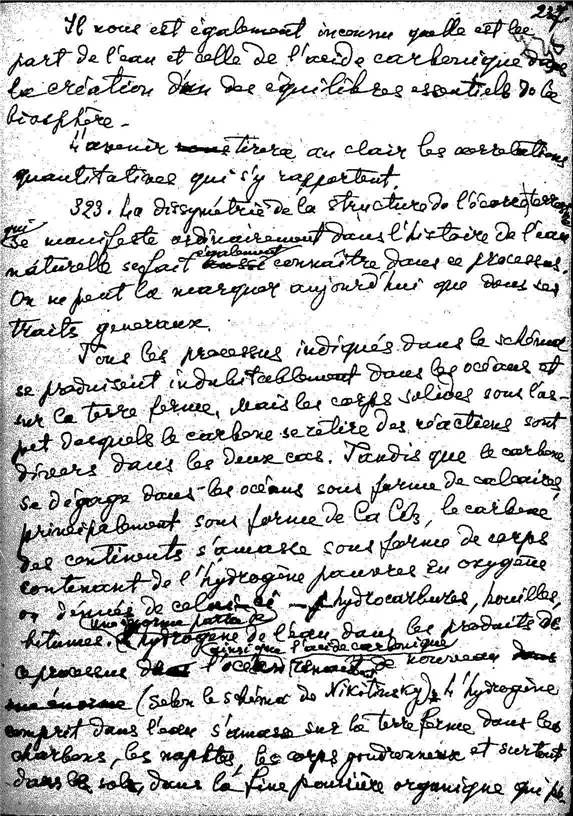 237
Il nous est également inconnu quelle est la
part de l'eau et celle de l'acide carbonique dans
la création d'un des équilibres essentiels de la
biosphère.
L'avenir tirera au clair les correlations
quantitatives qui s'y rapportent
323. La dissymétrie de la structure de l'écorce terrestre
qui
se manifeste ordinairement dans l'histoire de l'eau
également
naturelle se fait connaître dans ce processus.
On ne peut la marquer aujourd'hui que dans ses
traits generaux.
Tous les processus indiqués dans le schéma
se produisent indubitablement dans les océans et
sur la terre ferme, mais les corps solides sous l'as-
pet desquels le carbone se retire des réactions sont
divers dans les deux cas. Tandis que le carbone
se dégage dans les océans sous forme de calcaires,
principalement sous forme de CaCO3, le carbone
des continents s'amasse sous forme de corps
contenant de l'hydrogène pauvres en oxygène
ou dénués de celui-ci – hydrocarbures, houilles,
une énorme partie de
bitumes. hydrogène de l'eau dans les produits de
ainsi que l'acide carbonique
ce processus de nouveau
(selon le schéma de Nikitinsky). L'hydrogène
comprit dans l'eau s'amasse sur la terre ferme dans les
charbons, les naphtes, les corps goudronneux et surtout
dans le sols, dans la fine poussière organique qui